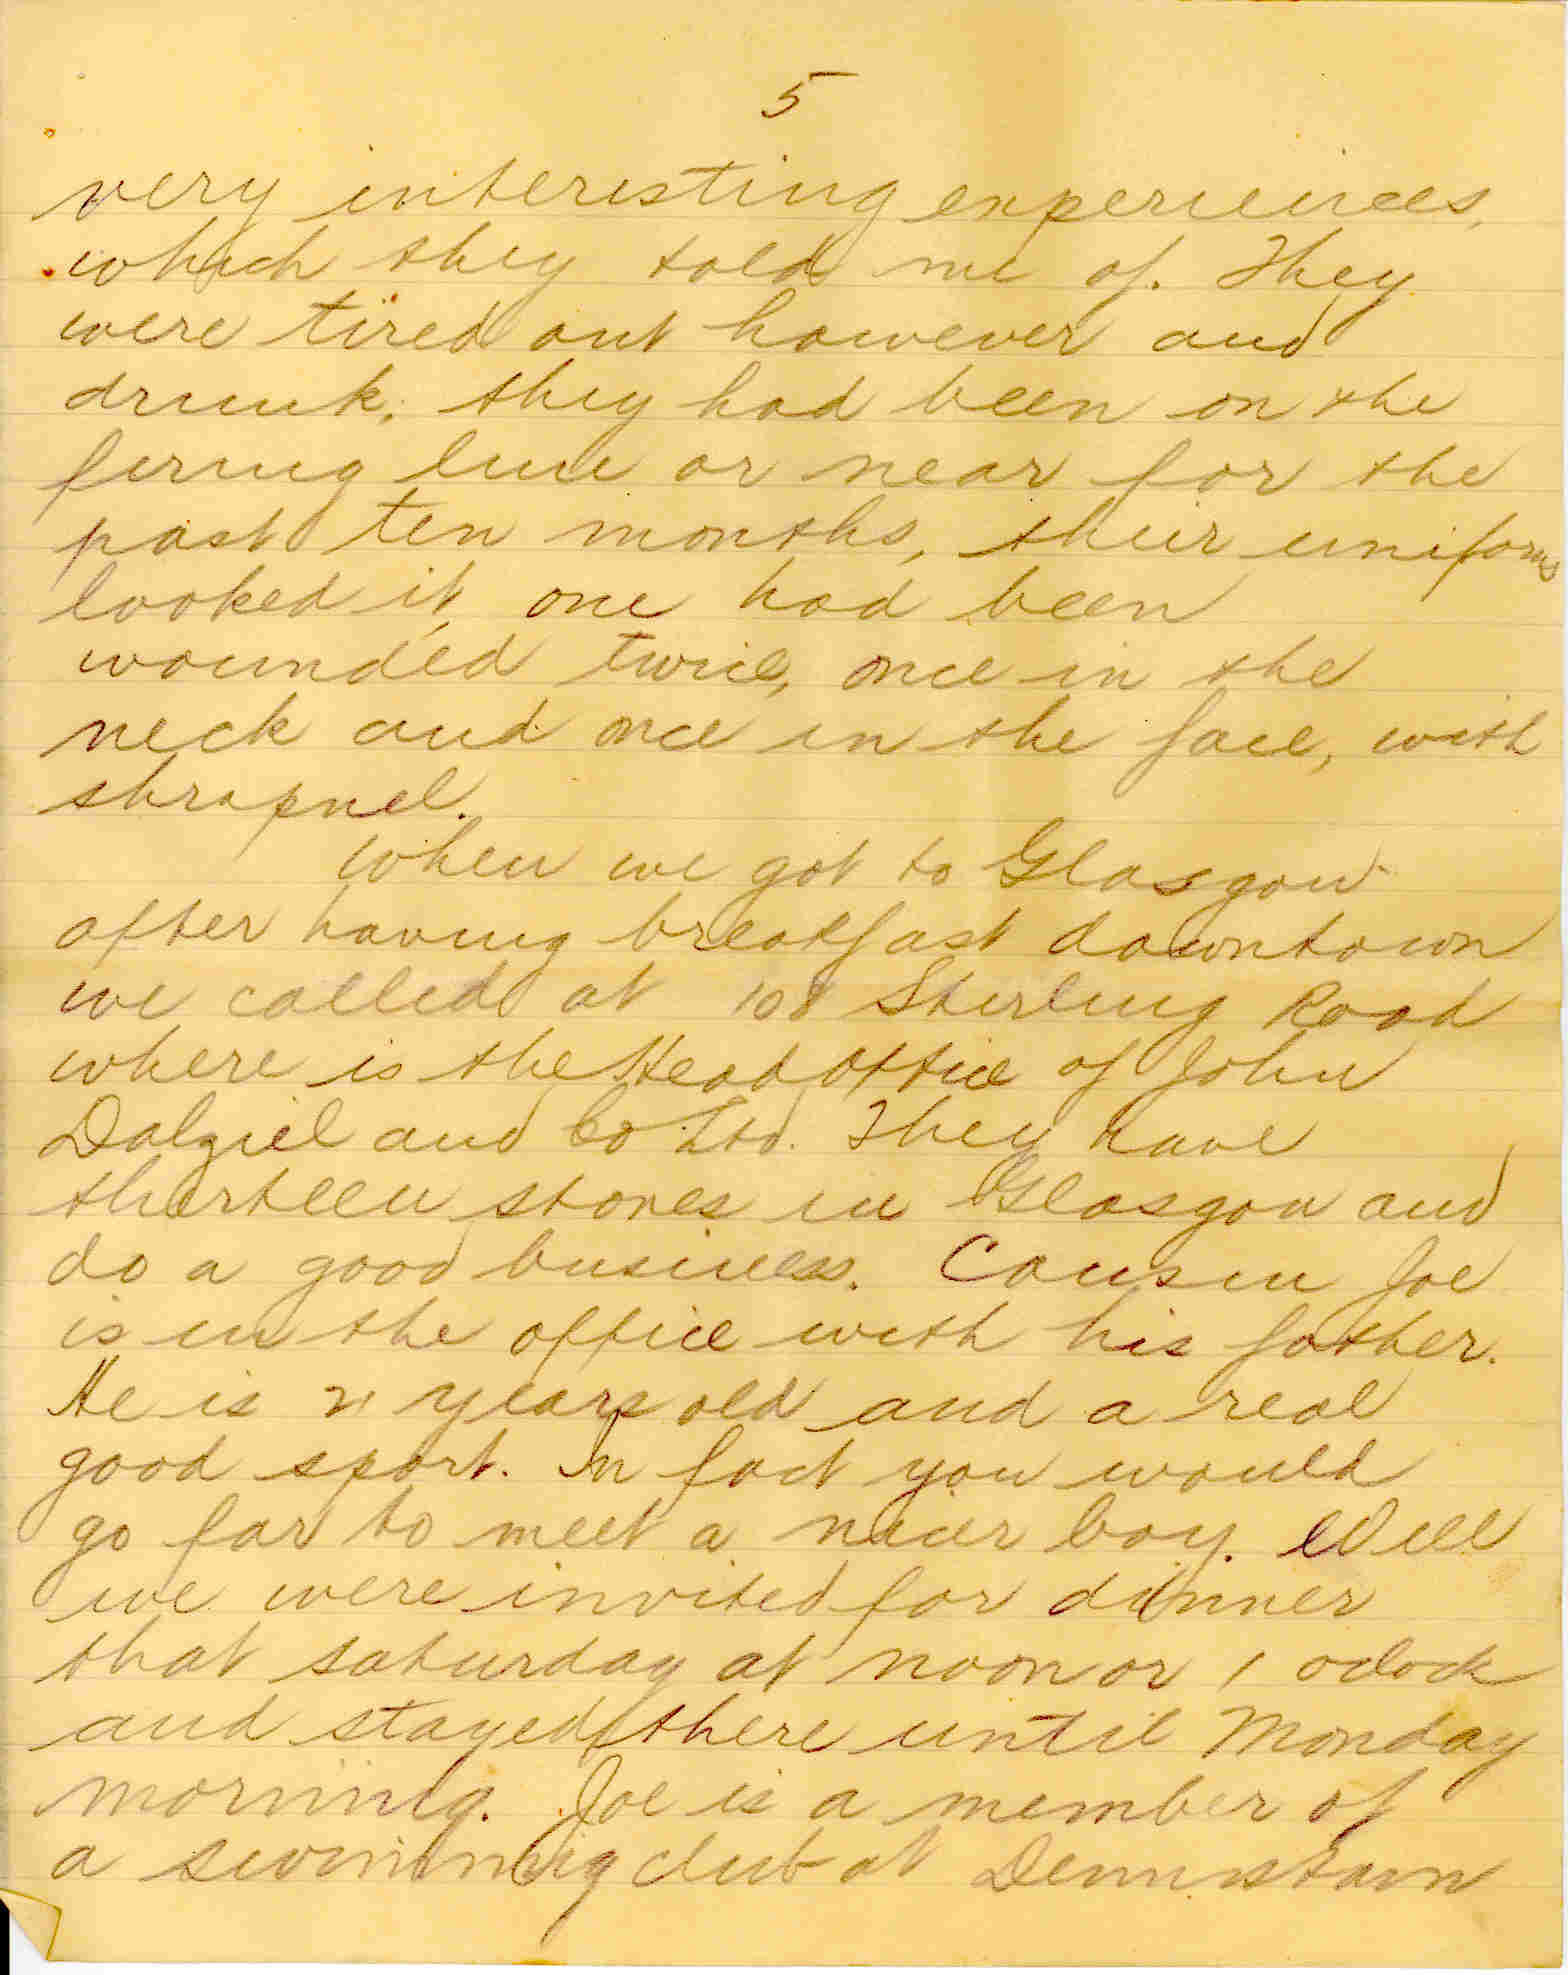 5
very interesting experiences,
which they told me of. They
were tired out however and
drunk, they had been on the
firing line or near for the
past ten months, their uniforms
looked it, one had been
wounded twice, once in the
neck and once in the face, with
shrapnel.
When we got to Glasgow
after having breakfast downtown
we called at 108 Stirling Road
where is the Head Office of John
Dalziel and Co Ltd. They have
thirteen stores in Glasgow and
do a good business. Cousin Joe
is in the office with his father.
He is 21 years old and a real
good sport. In fact you would
go far to meet a nicer boy. Well
we were invited for dinner
that saturday at noon or 1 oclock
and stayed there until Monday
morning. Joe is a member of
a swimming club at Dennistown